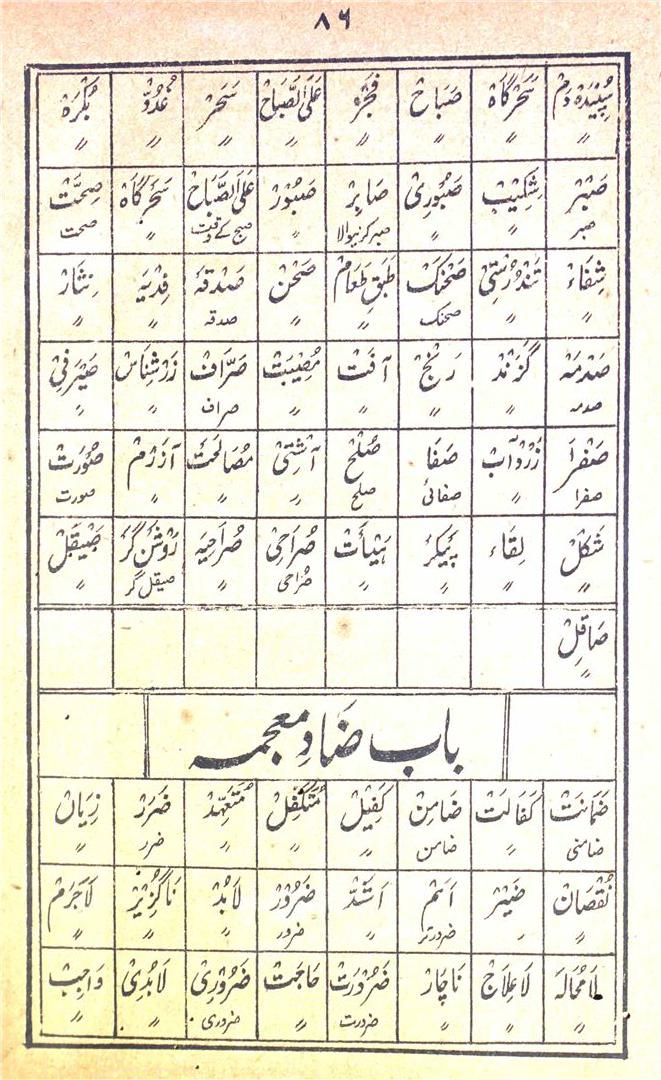 ۸۶
سپیدہ دم سحرگاہ صباح فجر علی الصباح سحر غدو بکرہ
〃 〃 〃 〃 〃 〃 〃 〃
صبر شکیب صبوری صابر صبور علی الصباح سحرگاہ صحت
صبر 〃 〃 صبر کرنیوالا 〃 صبح کے وقت 〃 صحت
شفاء تندرستی صحنک طبق طعام صحن صدقہ فدیہ نثار
〃 〃 صحنک 〃 〃 صدقہ 〃 〃
صدمہ گزند رنج آفت مصیبت صراف زرشناس صیرفی
صدمہ 〃 〃 〃 〃 صراف 〃 〃
صفرا زردآب صفا صلح آشتی مصالحت آزرم صورت
صفرا 〃 صفائی صلح 〃 〃 〃 صورت
شکل لقاء پیکر ہیأت صراحی صراحیہ روشن گر صیقل
〃 〃 〃 〃 صراحی 〃 صیقل گر 〃
صاقل
〃
باب ضاد معجمہ
ضمانت کفالت ضامن کفیل متکفل متعہد ضرر زیان
ضامنی 〃 ضامن 〃 〃 〃 ضرر 〃
نقصان ضیر اہم اشد ضرور لابد ناگزیر لاجرم
〃 〃 ضرورتر 〃 ضرور 〃 〃 〃
لامحالہ لاعلاج ناچار ضرورت حاجت ضروری لابدی واجب
〃 〃 〃 ضرورت 〃 ضروری 〃 〃